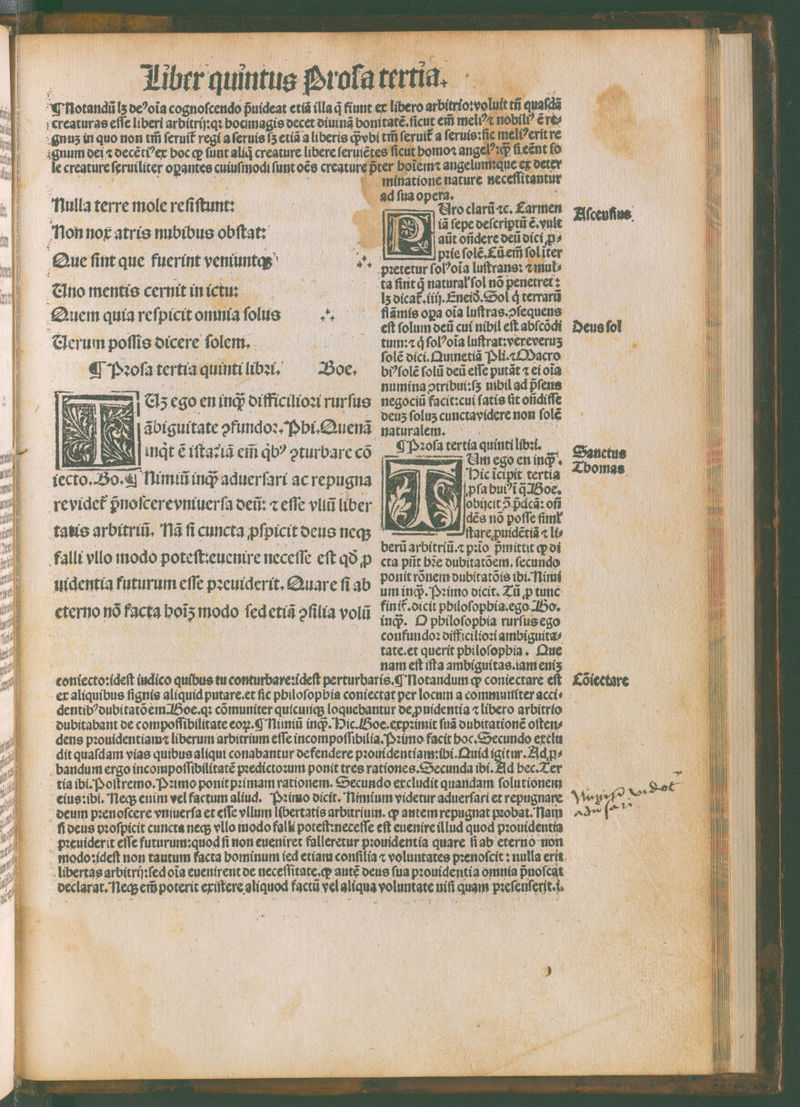 Liber quintus Prosa tertia.
¶ Notandū lꝫ deꝰ oīa cognoscendo p̄uideat etiā illa q̄ fiunt ex libero arbitrio: voluit tn̄ quasdā
creaturas esse liberi arbitrij: qꝛ hoc magis decet diuinā bonitatē. sicut em̄ meliꝰ ⁊ nobiliꝰ ē re⸗
gnuꝫ in quo non tm̄ seruit̄ regi a seruis sꝫ etiā a liberis ꝙ̄ vbi tm̄ seruit̄ a seruis: sic meliꝰ erit re
gnum dei ⁊ decētiꝰ ex hoc ꝙ sunt aliq̄ creature libere seruiētes sicut homo ⁊ angelꝰ: ꝙ̄ si eēnt so
le creature seruiliter oꝑantes cuiusmodi sunt oēs creature p̄ter hoīem ⁊ angelum: que ex deter
minatione nature necessitantur
ad sua opera.
Nulla terre mole resistunt:
Non nox atris nubibus obstat:
Que sint que fuerint veniuntqꝫ
Uno mentis cernit in ictu:
Quem quia respicit omnia solus
Uerum possis dicere solem.
¶ Prosa tertia quinti libri. Boe.
TUꝫ ego en inqꝙ̄ difficiliori rursus
ābiguitate ꝯfundor. Phi. Quenā
inq̄t ē ista: iā em̄ qͥbꝰ ꝯturbare cō
iecto. Bo. ¶ Nimiū inqꝙ̄ aduersari ac repugna
re videt̄ p̄noscere vniuersa deū: ⁊ esse vllū liber
tatis arbitriū. Nā si cuncta ꝓspicit deus neqꝫ
falli vllo modo potest: euenire necesse est qđ ꝓ
uidentia futurum esse preuiderit. Quare si ab
eterno nō facta hoīꝫ modo sed etiā ꝯsilia volū
PUro clarū ⁊c. Carmen
iā sepe descriptū ē. vult
aūt oñdere deū dici ꝓ⸗
prie solē. Cū em̄ sol iter
pretetur solꝰ oīa lustrans: ⁊ mul⸗
ta sint q̄ natural̓ sol nō penetret:
lꝫ dicat̄. iiij. Eneid̓. Sol q̄ terrarū
flāmis oꝑa oīa lustras. ꝯsequens
est solum deū cui nihil est abscōdi
tum: ⁊ q̄ solꝰ oīa lustrat: vere veruꝫ
solē dici. Quinetiā Pli. ⁊ Macro
biꝰ solē solū deū esse putāt ⁊ ei oīa
numina ꝯtribui: sꝫ nihil ad p̄sens
negociū facit: cui satis sit oñdisse
deuꝫ soluꝫ cuncta videre non solē
naturalem.
¶ Prosa tertia quinti libri.
TUm ego en inqꝙ̄.
Hic īcipit tertia
ꝓsa huiꝰ ī q̄ Boe.
obijcit ꝯ̄ p̄dcā: oñ
dēs nō posse siml̓
stare ꝓuidētiā ⁊ li⸗
berū arbitriū. ⁊ p̄io p̄mittit ꝙ di
cta pn̄t hr̄e dubitatōem. secundo
ponit rōnem dubitatōis ibi. Nimi
um inqꝙ̄. Primo dicit. Tū ꝓ tunc
finit̄. dicit philosophia. ego Bo.
inqꝙ̄. O philosophia rursus ego
confundor difficiliori ambiguita⸗
tate. et querit philosophia. Que
nam est ista ambiguitas. iam eniꝫ
coniecto: idest iudico quibus tu conturbare: idest perturbaris. ¶ Notandum ꝙ coniectare est
ex aliquibus signis aliquid putare. et sic philosophia coniectat per locum a communiter acci⸗
dentibꝰ dubitatōem Boe. qꝛ cōmuniter quicunqꝫ loquebantur de ꝓuidentia ⁊ libero arbitrio
dubitabant de compossibilitate eoꝝ. ¶ Nimiū inqꝙ̄. Hic Boe. exprimit suā dubitationē osten⸗
dens prouidentiam ⁊ liberum arbitrium esse incompossibilia. Primo facit hoc. Secundo exclu
dit quasdam vias quibus aliqui conabantur defendere prouidentiam: ibi. Quid igitur. Ad ꝓ⸗
bandum ergo incompossibilitatē predictorum ponit tres rationes. Secunda ibi. Ad hec. Ter
tia ibi. Postremo. Primo ponit primam rationem. Secundo excludit quandam solutionem
eius: ibi. Neqꝫ enim vel factum aliud. Primo dicit. Nimium videtur aduersari et repugnare
deum prenoscere vniuersa et esse vllum libertatis arbitrium. ꝙ autem repugnat probat. Nam
si deus prospicit cuncta neqꝫ vllo modo falli potest: necesse est euenire illud quod prouidentia
preuiderit esse futurum: quod si non eueniret falleretur prouidentia quare si ab eterno non
modo: idest non tantum facta hominum sed etiam consilia ⁊ voluntates prenoscit: nulla erit
libertas arbitrij: sed oīa euenirent de necessitate. ꝙ autē deus sua prouidentia omnia p̄noscat
declarat. Neqꝫ em̄ poterit existere aliquod factū vel aliqua voluntate nisi quam presenserit. i.
Ascensius
Deus sol
Sanctus
Thomas
Cōiectare